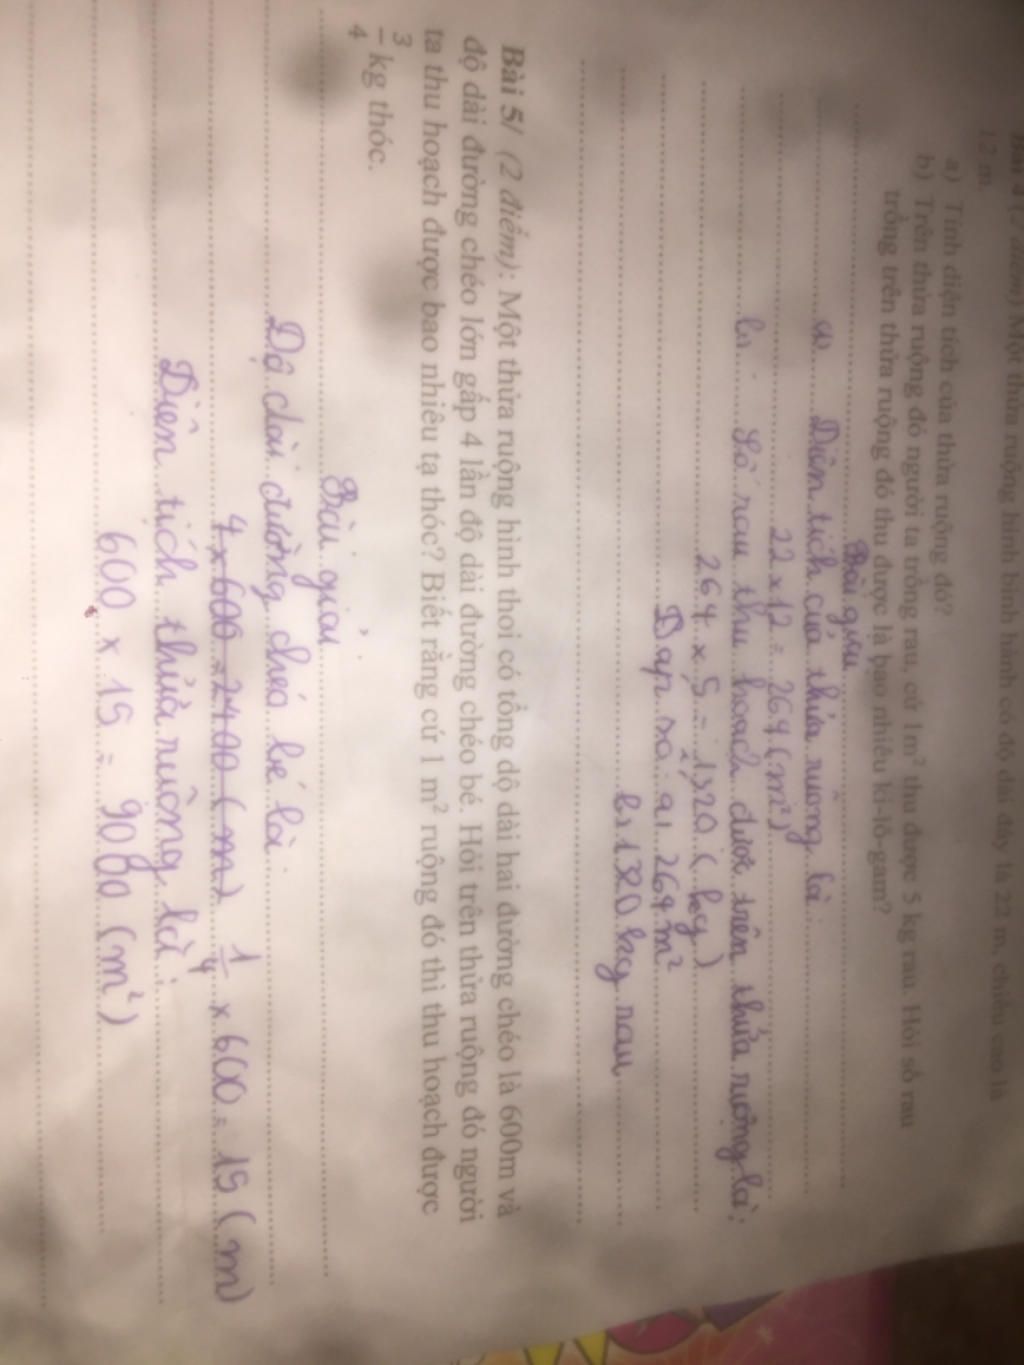 Bài 4 (2 điểm) Một thửa ruộng hình bình hành có độ dài đáy là 22 m, chiều cao là
12 m.
a) Tính diện tích của thửa ruộng đó?
b) Trên thửa ruộng đó người ta trồng rau, cứ 1m² thu được 5 kg rau. Hỏi số rau
trồng trên thửa ruộng đó thu được là bao nhiêu ki-lô-gam?
Bài giải
a) Diện tích của thửa ruộng là:
22 x 12 = 264 (m²)
b) Số rau thu hoạch được trên thửa ruộng là:
264 x 5 = 1320 (kg)
Đáp số: a) 264 m²
b) 1320 kg rau
Bài 5/ (2 điểm): Một thửa ruộng hình thoi có tổng độ dài hai đường chéo là 600m và
độ dài đường chéo lớn gấp 4 lần độ dài đường chéo bé. Hỏi trên thửa ruộng đó người
ta thu hoạch được bao nhiêu tạ thóc? Biết rằng cứ 1 m² ruộng đó thì thu hoạch được
3/4 kg thóc.
Bài giải
Độ dài đường chéo bé là:
4 x 600 = 2400 (m) 1/4 x 600 = 15 (m)
Diện tích thửa ruộng là:
600 x 15 = 9000 (m²)